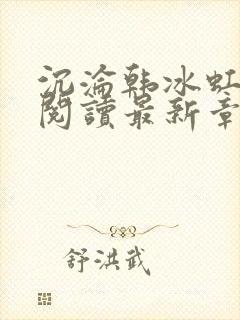 沉淪韩冰虹
閱讀最新章
舒洪武